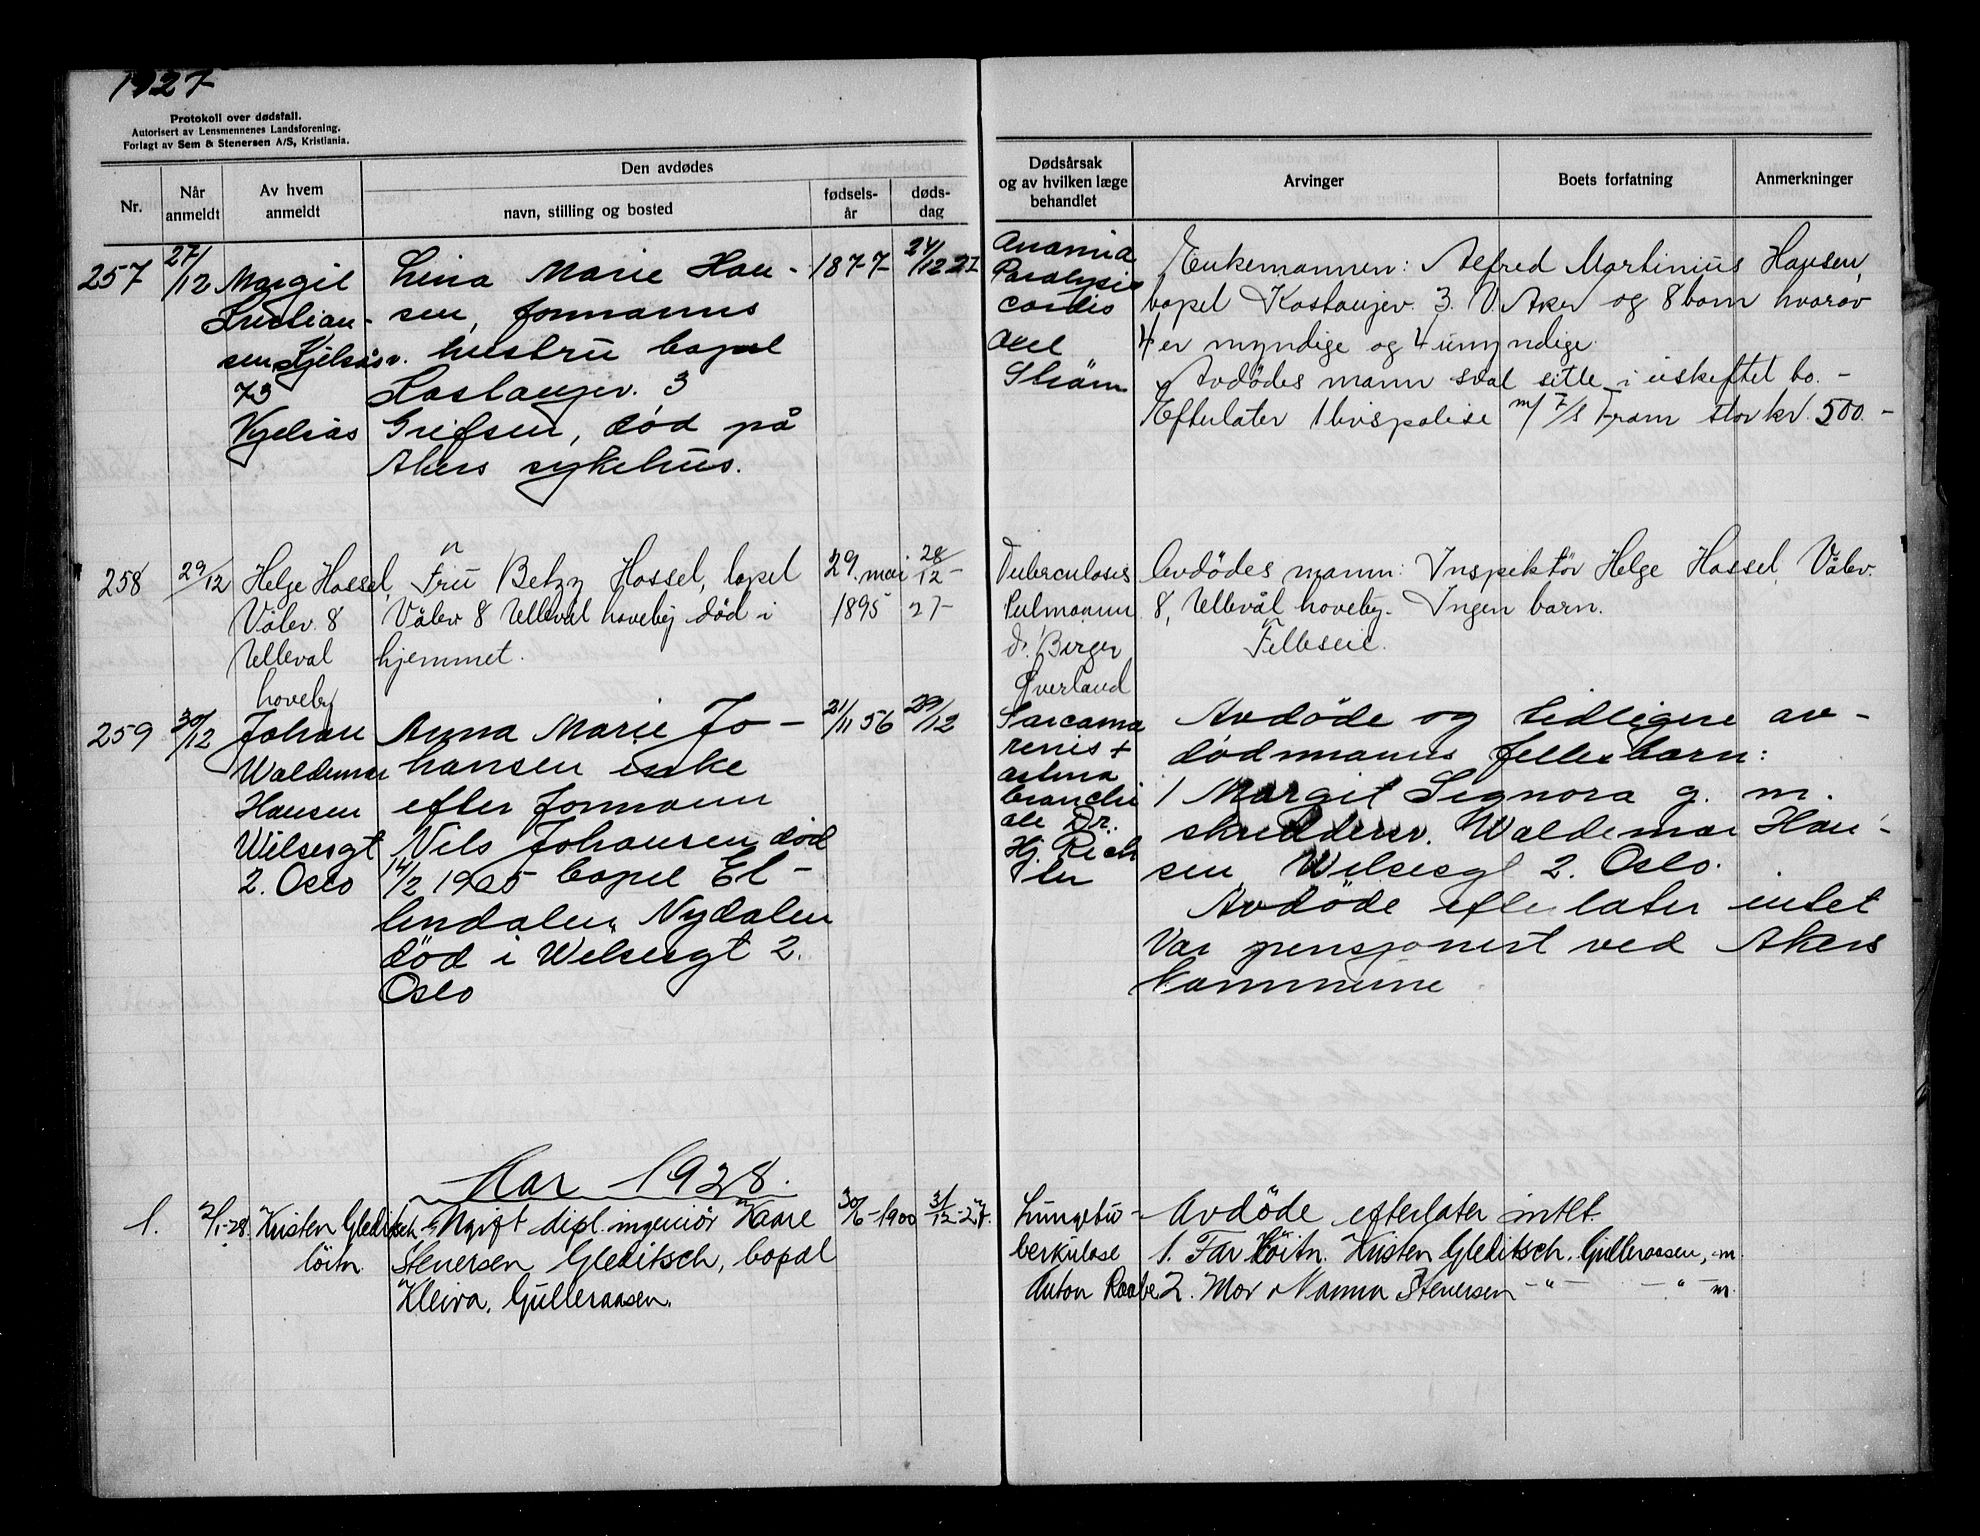 1927
Protokoll over dødsfall.
Autorisert av Lensmennenes Landsforening.
Forlagt av Sem & Stenersen A/S, Kristiania.
Nr.
Når anmeldt
Av hvem anmeldt
Den avdødes
navn, stilling og bosted
fødsels-år
døds-dag
Dødsårsak
og av hvilken læge
behandlet
Arvinger
Boets forfatning
Anmerkninger
257
27/12
Margit
Kristian-
sen Kjelsåsv.
73
Kjelsås
Lina Marie Han-
sen, formanns
hustru bopel
Kastanjev. 3
Grefsen, død på
Akers sykehus.
1877
24/12 27
Anæmia
Paralysis
cordis
Axel
Strøm
Enkemannen: Alfred Martinius Hansen,
bopel Kastanjev. 3. V. Aker og 8 barn hvorav
4 er myndige og 4 umyndige.
Avdödes mann skal sitte i uskiftet bo. -
Efterlater 1 livspolise m/ 7/s Fram stor kr. 500.-
258
29/12
Helge Hassel,
Vålev. 8
Ulleval
haveby
Fru Betzy Hassel, bopel
Vålev 8 Ullevål haveby död i
hjemmet.
29. mai
1895
28/12-
27-
Tuberculosis
Pulmonum
dr. Birger
Øverland
Avdödes mann: Inspektör Helge Hassel, Vålev.
8, Ullevål haveby. Ingen barn.
Felleseie.
259
30/12
Johan
Waldemar
Hansen
Welsesgt
2. Oslo
Anna Marie Jo-
hansen enke
efter formann
Nils Johansen död
14/2 1905 bopel El-
lendalen, Nydalen
död i Welsesgt 2.
Oslo
21/11 56
29/12
Sarcoma
renis +
astma
bronchi
ale Dr.
Hj. Rich
ter
Avdöde og tidligere av-
død manns fellesbarn:
1 Margit Signora g. m.
skreddersv. Waldemar Han-
sen Welsesgt 2. Oslo.
Avdöde efterlater intet
Var pensjonert ved Akers
Kommune
Aar 1928.
1.
2/1-28.
Kristen Gleditsch
löitn.
Ugift dipl. ingeniör Kaare
Stenersen Gleditsch, bopæl
Kleiva, Gulleraasen.
30/6-1900
31/12-27.
Lungetu-
berkulose
Anton Raabe
Avdöde efterlater intet.
1. Far Löitn. Kristen Gleditsch. Gulleraasen, m.
2. Mor Nanna Stenersen -"- -"- m.